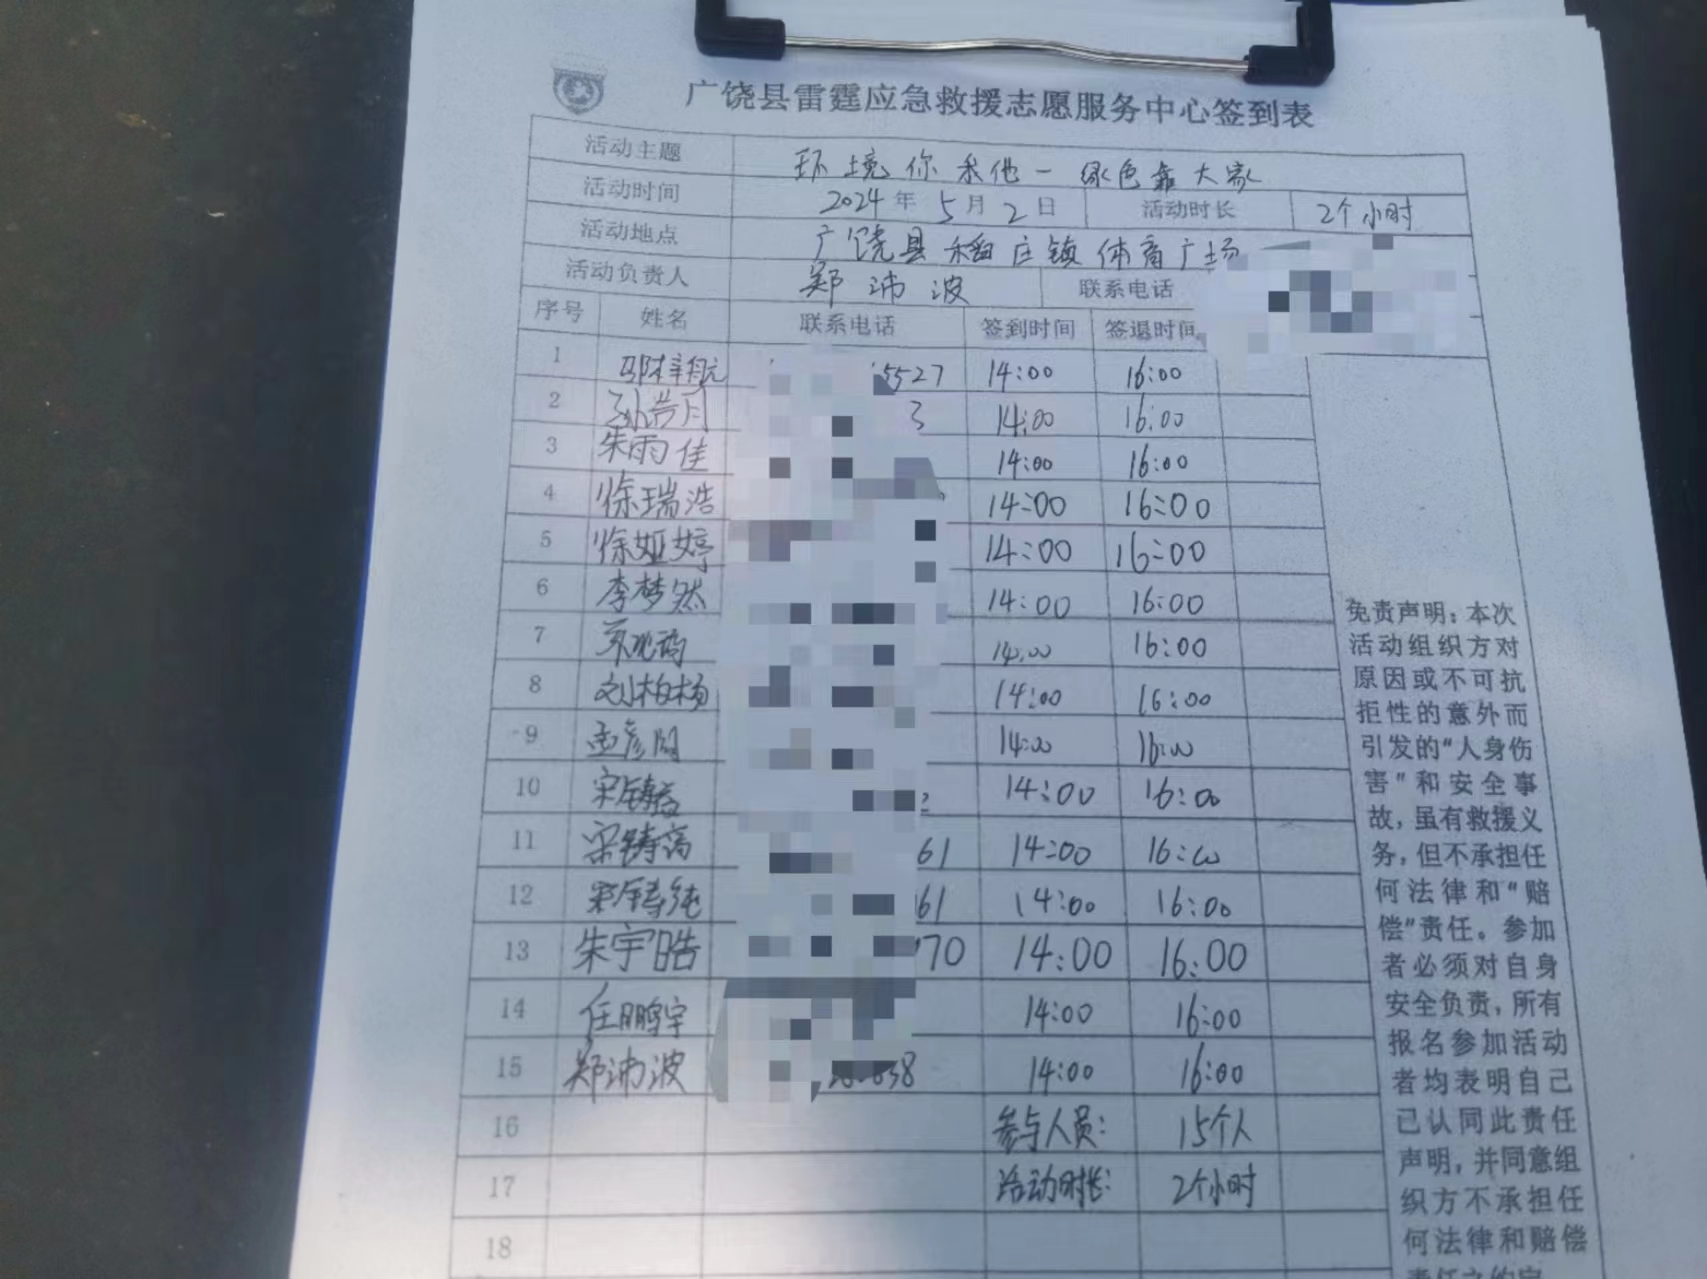 广饶县雷霆应急救援志愿服务中心签到表
活动主题 环境你我他一绿色靠大家
活动时间 2024年5月2日 活动时长 2个小时
活动地点 广饶县稻庄镇体育广场
活动负责人 郑沛波 联系电话
序号 姓名 联系电话 签到时间 签退时间
1 5527 14:00 16:00
2 3 14:00 16:00
3 朱雨佳 14:00 16:00
4 徐瑞浩 14:00 16:00
5 徐娅婷 14:00 16:00
6 李梦然 14:00 16:00
7 14:00 16:00
8 刘柏杨 14:00 16:00
9 14:00 16:00
10 14:00 16:00
11 宋铸高 61 14:00 16:00
12 宋铸纯 61 14:00 16:00
13 朱宇皓 70 14:00 16:00
14 任鹏宇 14:00 16:00
15 郑沛波 14:00 16:00
16 参与人员: 15个人
17 活动时长: 2个小时
18
免责声明:本次
活动组织方对
原因或不可抗
拒性的意外而
引发的“人身伤
害”和安全事
故,虽有救援义
务,但不承担任
何法律和“赔
偿”责任。参加
者必须对自身
安全负责,所有
报名参加活动
者均表明自己
已认同此责任
声明,并同意组
织方不承担任
何法律和赔偿